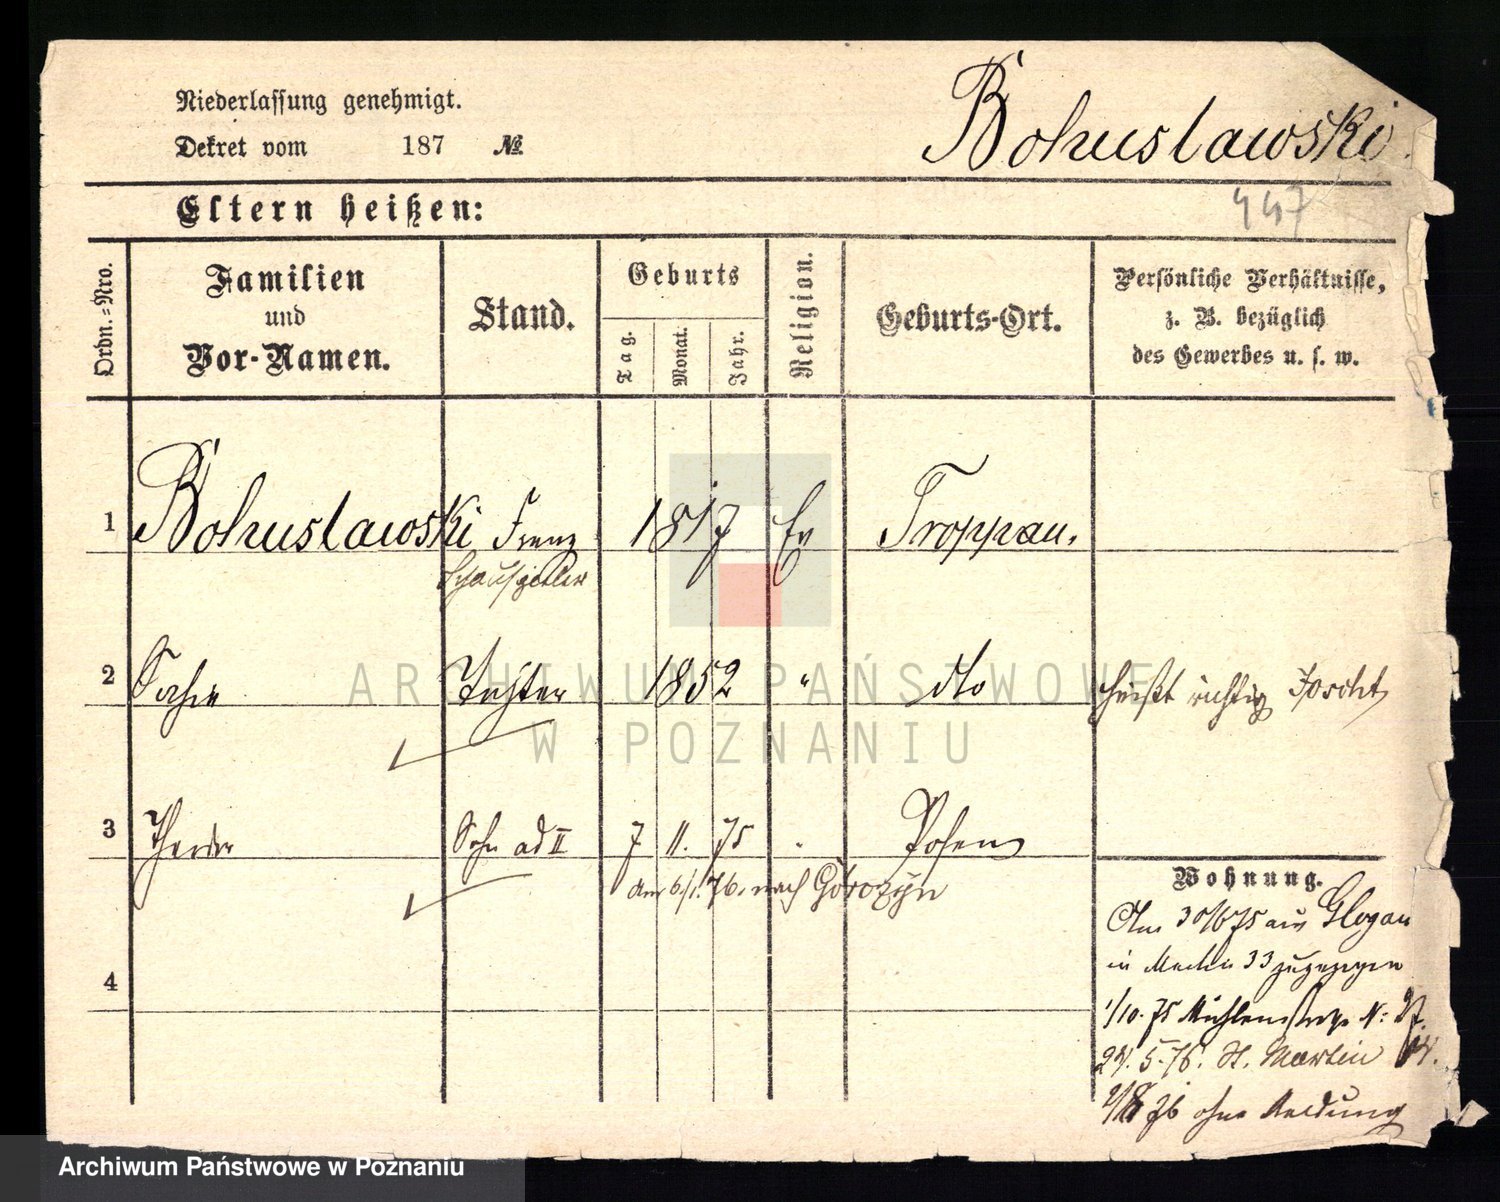 Niederlassung genehmigt.
Dekret vom 187 №
Bohuslawski.
447
Eltern heißen:
Ordn.=Nro.
Familien
und
Vor-Namen.
Stand.
Geburts
Tag.
Monat.
Jahr.
Religion.
Geburts-Ort.
Persönliche Verhältnisse,
z. B. bezüglich
des Gewerbes u. s. w.
1 Bohuslawski Franz 1817 Ev Troppau.
Schauspieler
2 Sophie Tochter 1852 " dto heißt richtig
3 Theodor Sohn ad II 7 11. 75 " Posen
am 6/1. 76. nach Górczyn
Wohnung.
Am 30/6 75 aus Glogau
in 33 zugezogen
1/10. 75 Mühlenstraße N:
24. 5. 76. St. Martin
76 ohne Meldung
4
ARCHIWUM PAŃSTWOWE
W POZNANIU
Archiwum Państwowe w Poznaniu